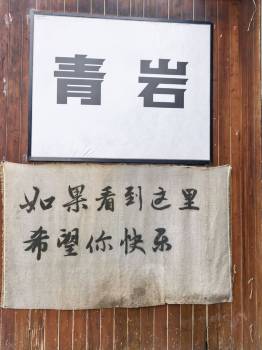 青岩
如果看到这里
希望你快乐